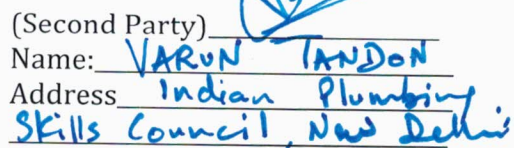 (Second Party)
Name: VARUN TANDON
Address Indian Plumbing
Skills Council, New Delhi